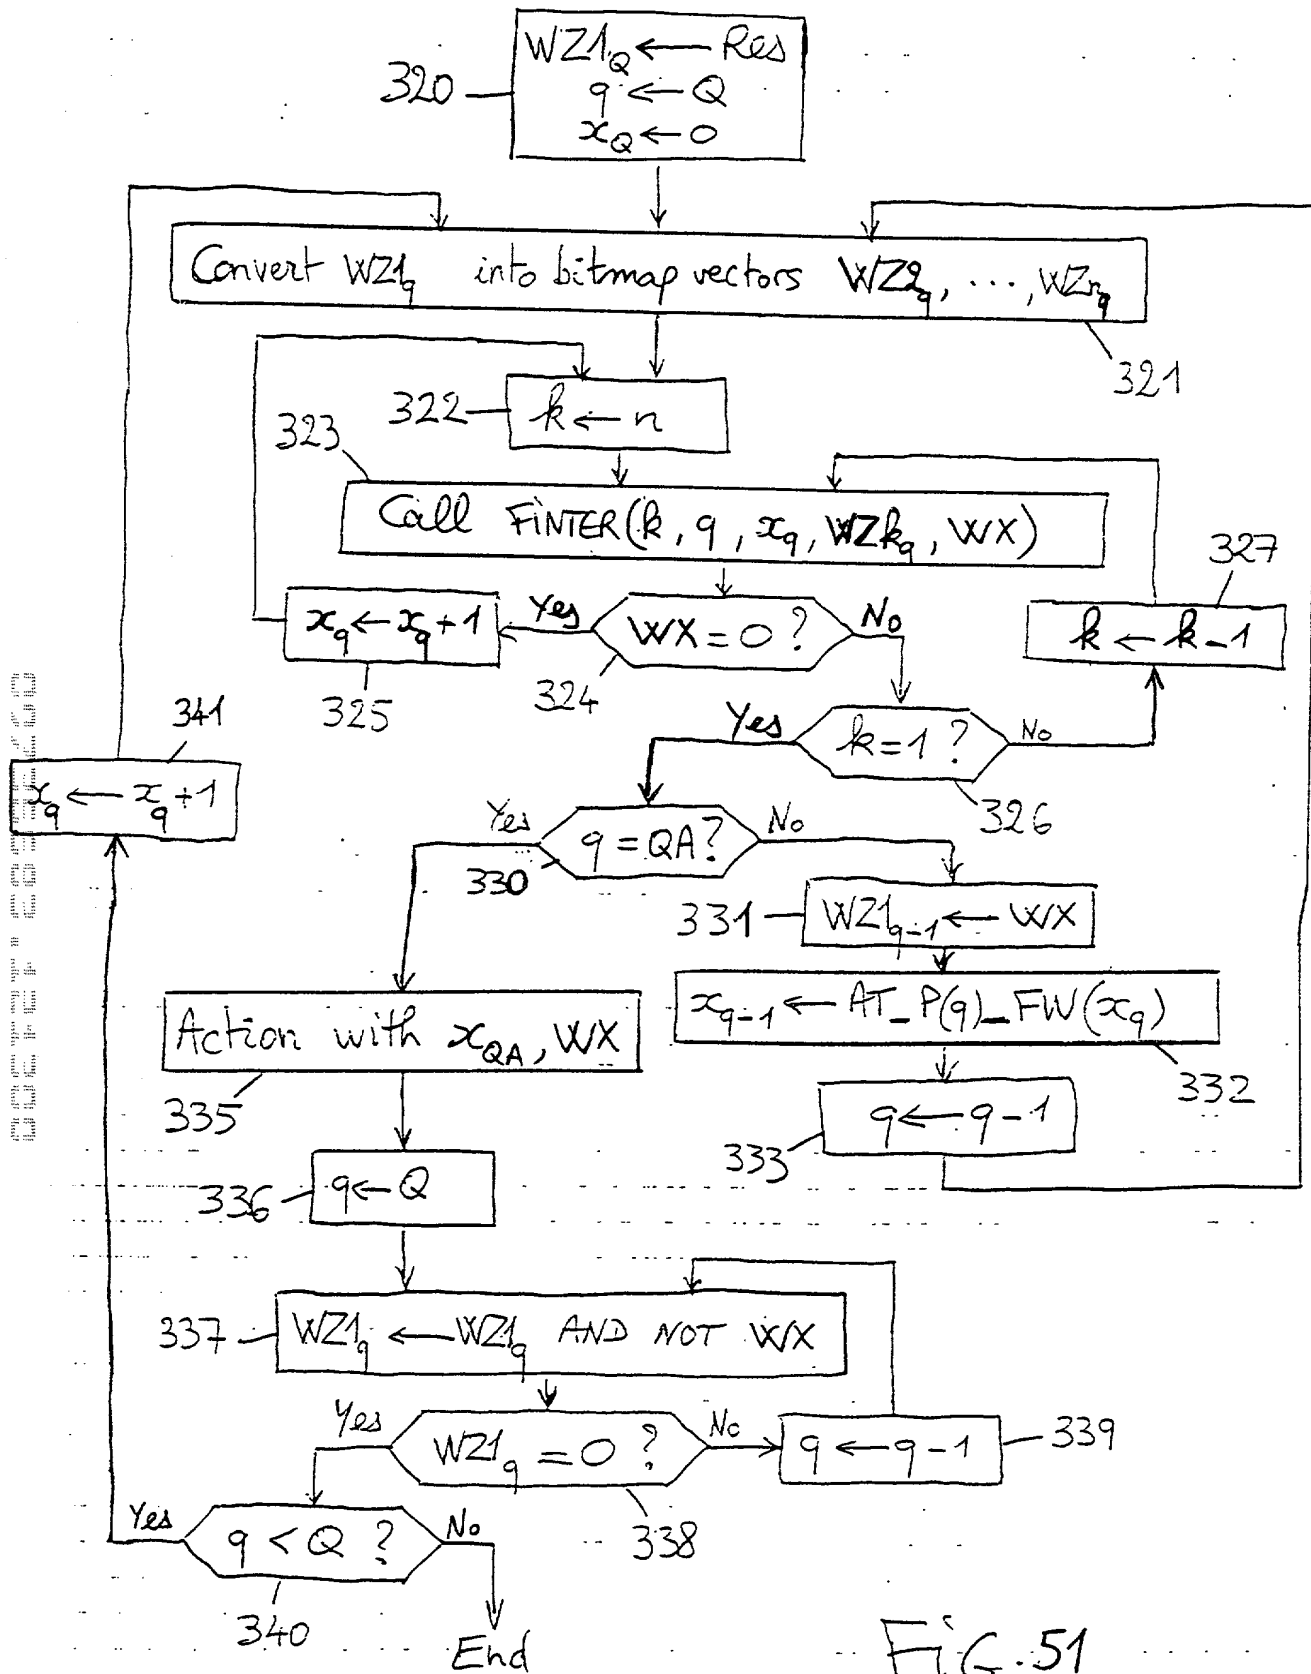 WZ1Q ← Res
q ← Q
xQ ← 0
320
Convert WZ1q into bitmap vectors WZ2q, ..., WZnq
321
322
k ← n
323
Call FINTER(k, q, xq, WZkq, WX)
327
xq ← xq + 1
Yes
WX = 0 ?
No
k ← k - 1
325
324
341
Yes
k = 1 ?
No
xq ← xq + 1
326
Yes
q = QA ?
No
330
331
WZ1q-1 ← WX
Action with xQA, WX
xq-1 ← AT_P(q)_FW(xq)
335
332
q ← q - 1
333
336
q ← Q
337
WZ1q ← WZ1q AND NOT WX
Yes
WZ1q = 0 ?
No
q ← q - 1
339
Yes
q < Q ?
No
338
340
End
FiG. 51